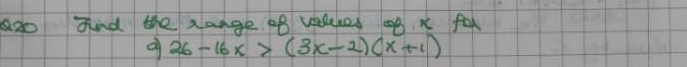 Q20 Find the range of values of x for
a) 26-16x > (3x-2)(x+1)